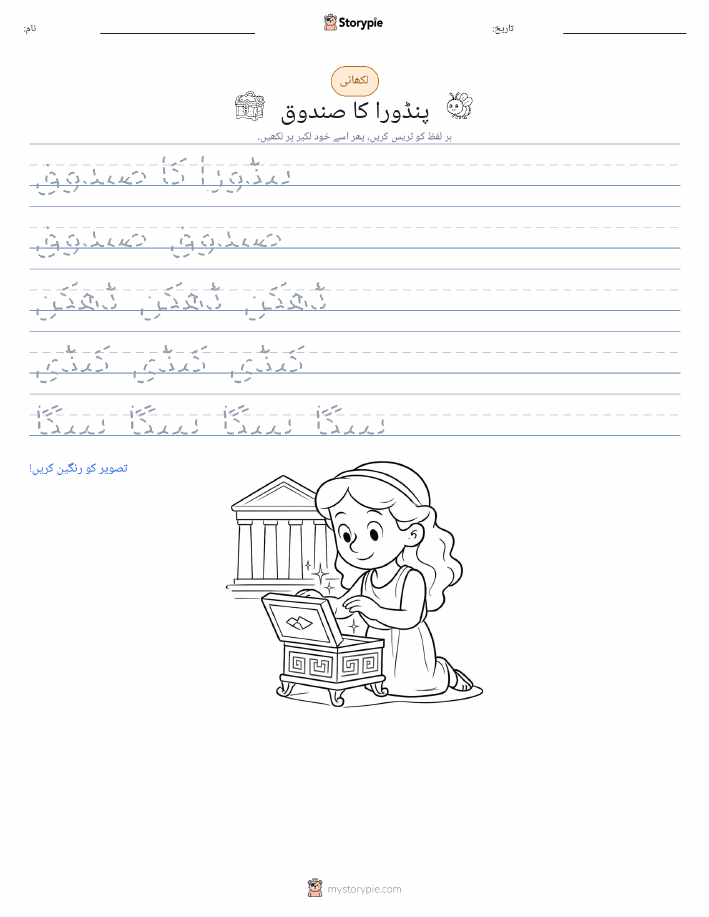 Storypie
نام:
تاریخ:
لکھائی
پنڈورا کا صندوق
ہر لفظ کو ٹریس کریں، پھر اسے خود لکیر پر لکھیں۔
پنڈورا کا صندوق
صندوق صندوق
ڈھکن ڈھکن ڈھکن
کنڈی کنڈی کنڈی
تصویر کو رنگین کریں!
mystorypie.com